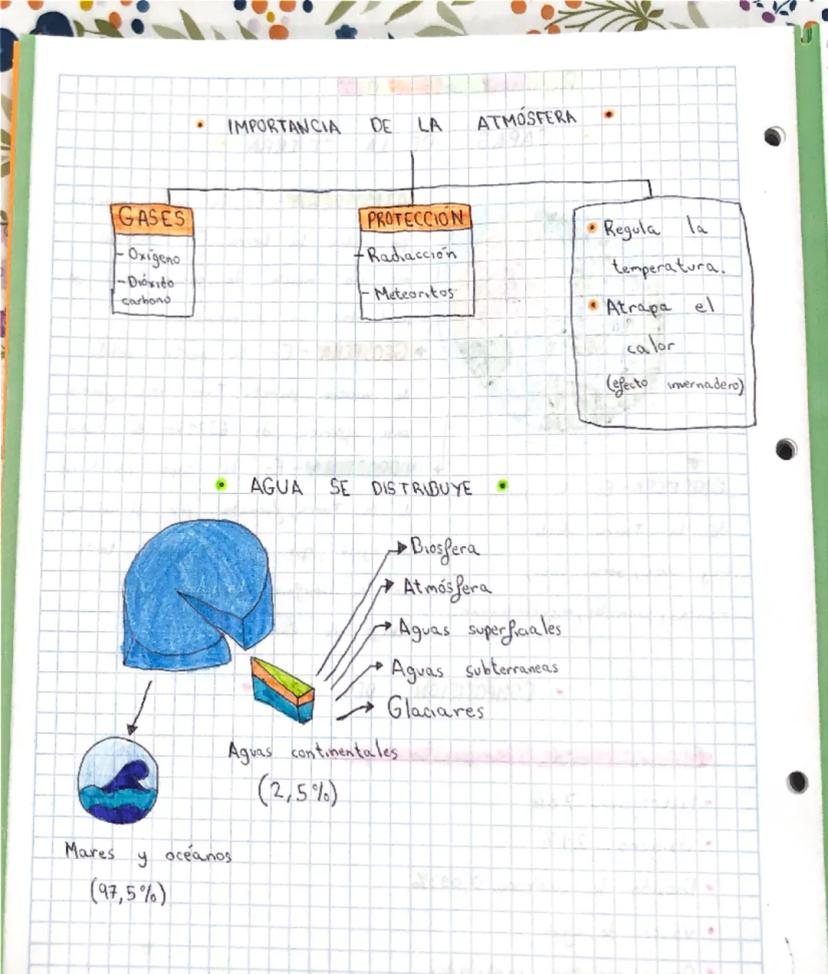 IMPORTANCIA DE LA ATMÓSFERA
GASES
- Oxígeno
- Dióxido
carbono
PROTECCIÓN
- Radiacción
- Meteoritos
Regula la
temperatura.
Atrapa el
calor
(efecto invernadero)
AGUA SE DISTRIBUYE
Biosfera
Atmósfera
Aguas superficiales
Aguas subterraneas
Glaciares
Aguas continentales
(2,5%)
Mares y océanos
(97,5%)